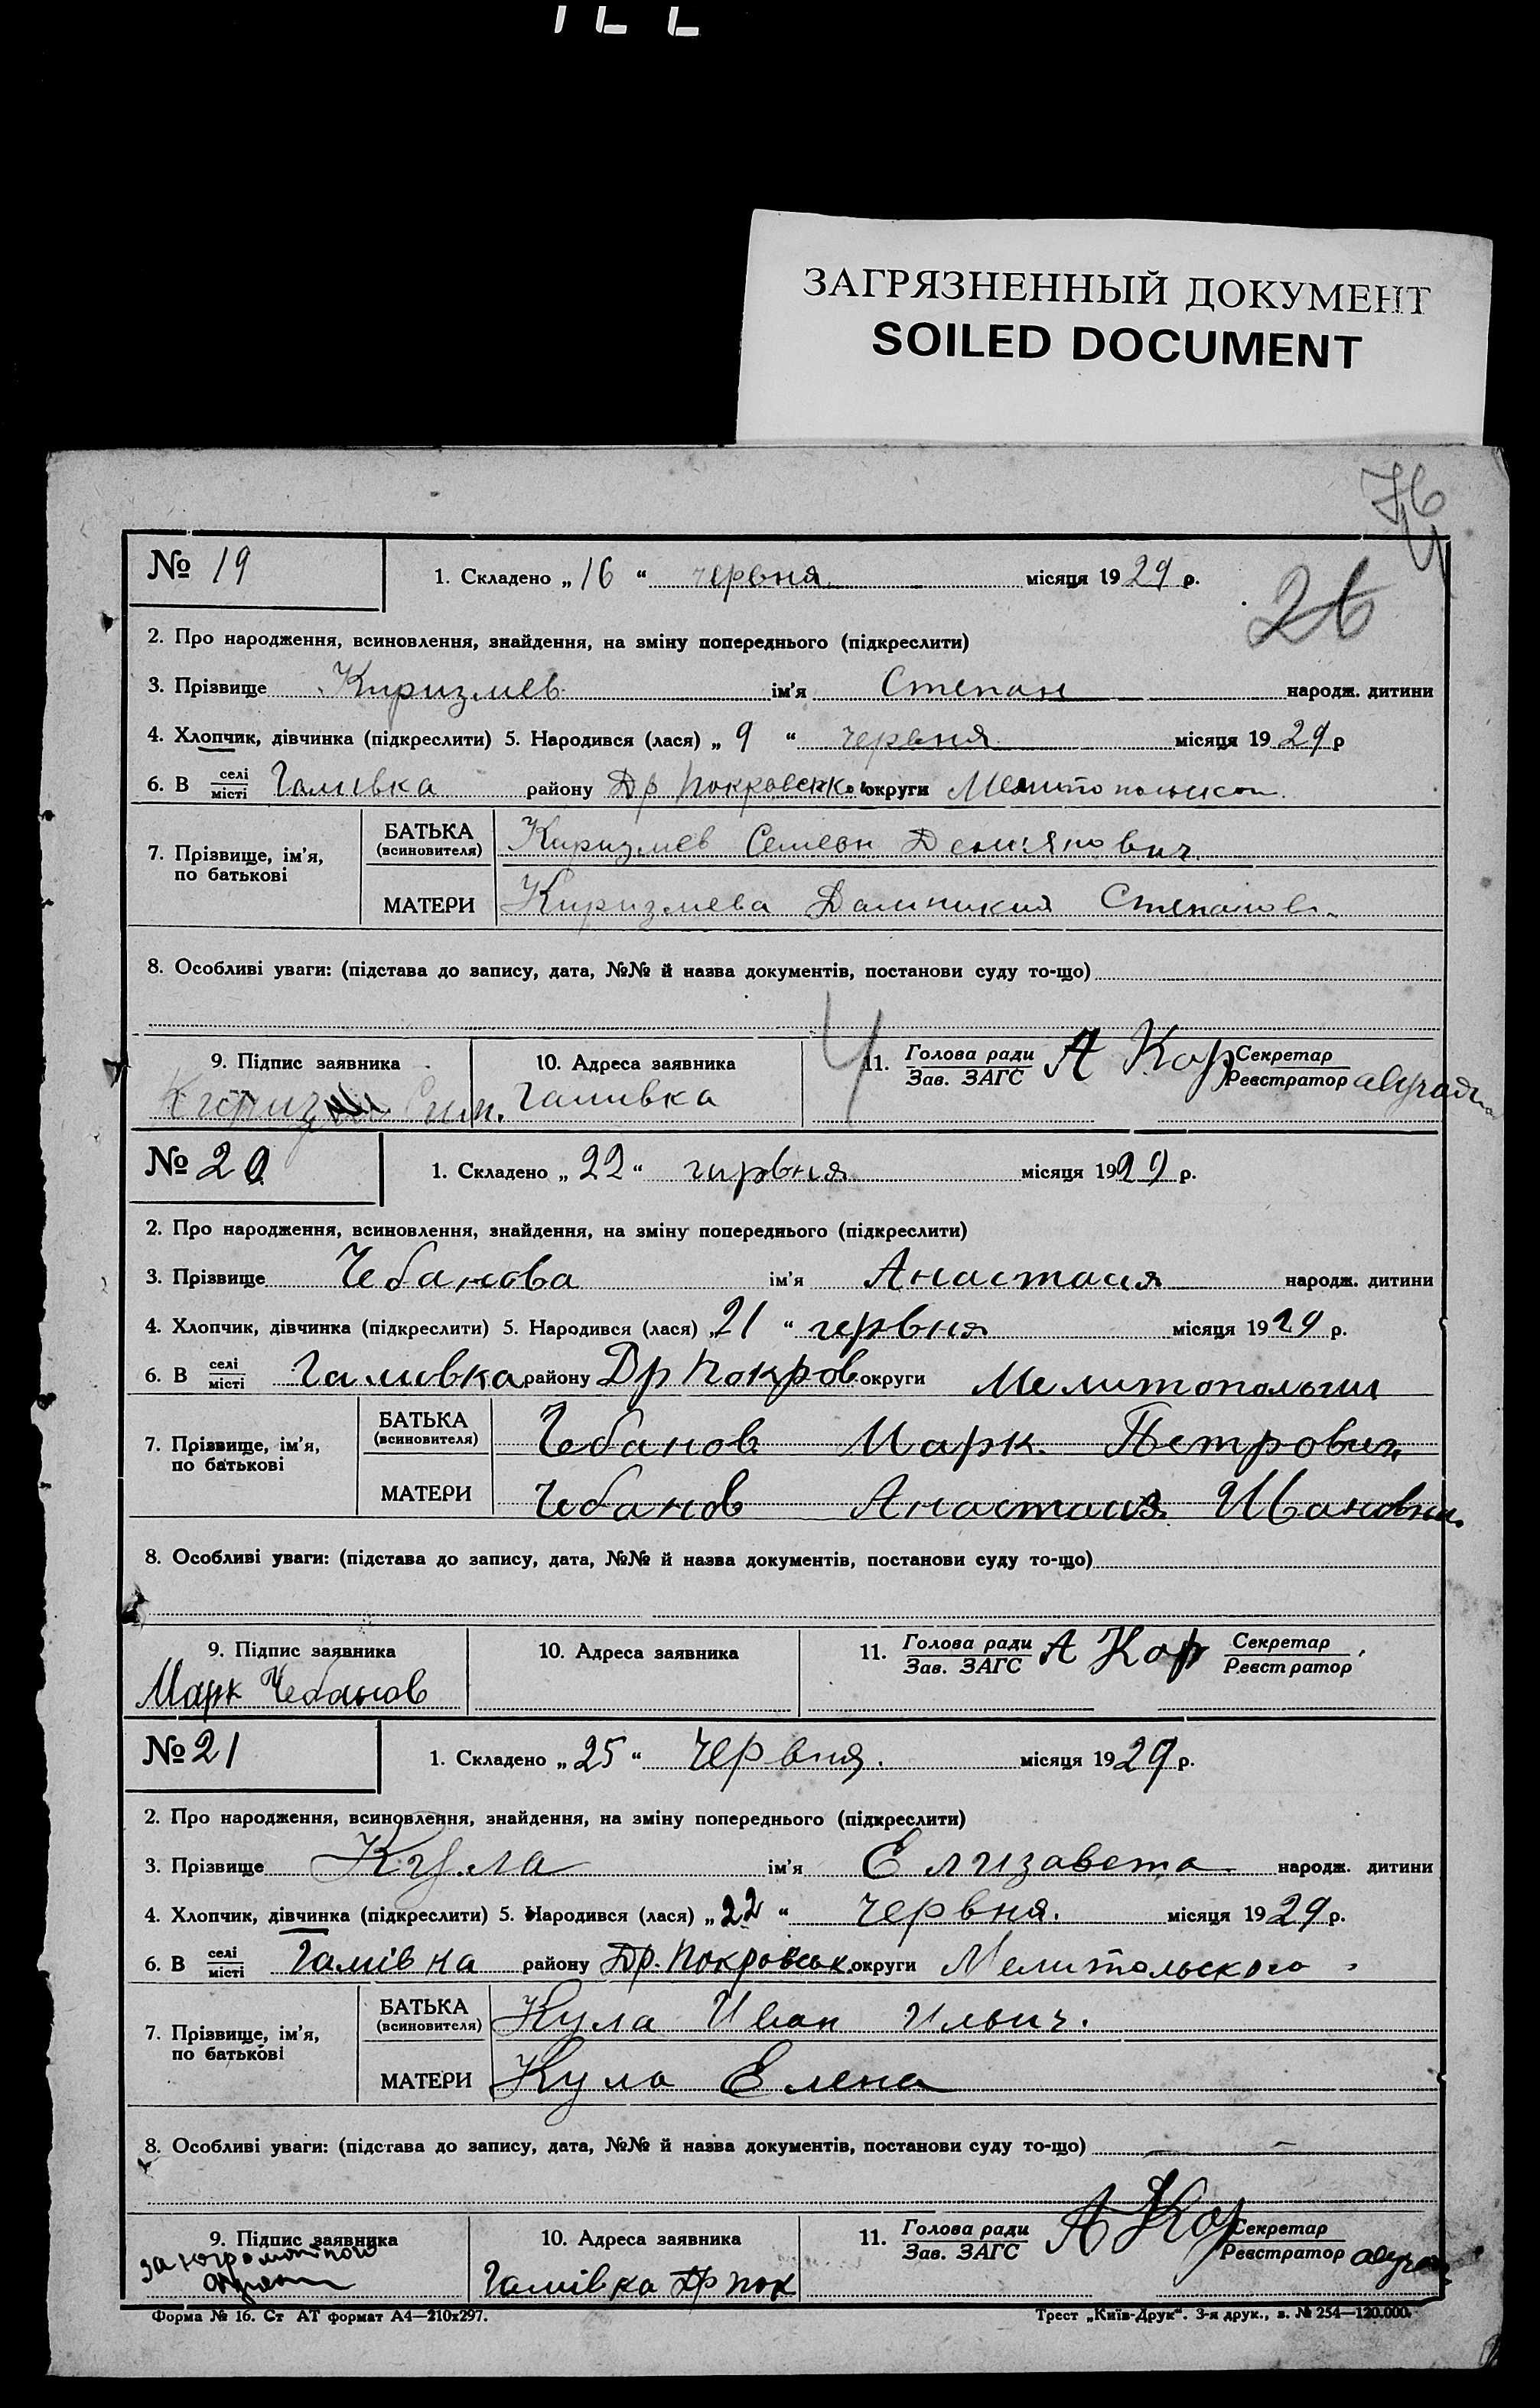 ЗАГРЯЗНЕННЫЙ ДОКУМЕНТ
SOILED DOCUMENT
26
№ 19
1. Складено „16“ червня місяця 1929 р.
2. Про народження, всиновлення, знайдення, на зміну попереднього (підкреслити)
3. Прізвище Киризлиев ім'я Степан народж. дитини
4. Хлопчик, дівчинка (підкреслити) 5. Народився (лася) „9“ червня місяця 1929 р
6. В селі місті Гамівка району Др Покровск округи
7. Прізвище, ім'я, по батькові
БАТЬКА (всиновителя) Киризлиев Семеон Демянович
МАТЕРИ Киризлиева Степанов
8. Особливі уваги: (підстава до запису, дата, №№ й назва документів, постанови суду то-що)
9. Підпис заявника
10. Адреса заявника Гамивка
11. Голова ради Зав. ЗАГС А Кор Секретар Реєстратор
№ 20
1. Складено „22“ червня місяця 1929 р.
2. Про народження, всиновлення, знайдення, на зміну попереднього (підкреслити)
3. Прізвище Чебанова ім'я Анастасия народж. дитини
4. Хлопчик, дівчинка (підкреслити) 5. Народився (лася) „21“ червня місяця 1929 р.
6. В селі місті Гамивка району Др Покров округи
7. Прізвище, ім'я, по батькові
БАТЬКА (всиновителя) Чебанов Марк Петрович
МАТЕРИ Чебанов Анастасия Ивановна
8. Особливі уваги: (підстава до запису, дата, №№ й назва документів, постанови суду то-що)
9. Підпис заявника Марк Чебанов
10. Адреса заявника
11. Голова ради Зав. ЗАГС А Кор Секретар Реєстратор
№ 21
1. Складено „25“ червня. місяця 1929 р.
2. Про народження, всиновлення, знайдення, на зміну попереднього (підкреслити)
3. Прізвище Кула ім'я Елизавета народж. дитини
4. Хлопчик, дівчинка (підкреслити) 5. Народився (лася) „22“ червня. місяця 1929 р.
6. В селі місті Гамівка району Др. Покровськ. округи Мелитольского
7. Прізвище, ім'я, по батькові
БАТЬКА (всиновителя) Кула Иван Ильич.
МАТЕРИ Кула Елена
8. Особливі уваги: (підстава до запису, дата, №№ й назва документів, постанови суду то-що)
9. Підпис заявника
10. Адреса заявника Гамівка Др Пок
11. Голова ради Зав. ЗАГС А Кор Секретар Реєстратор
Форма № 16. Ст АТ формат А4—210х297.
Трест „Київ-Друк“. 3-я друк., з. № 254—120.000.